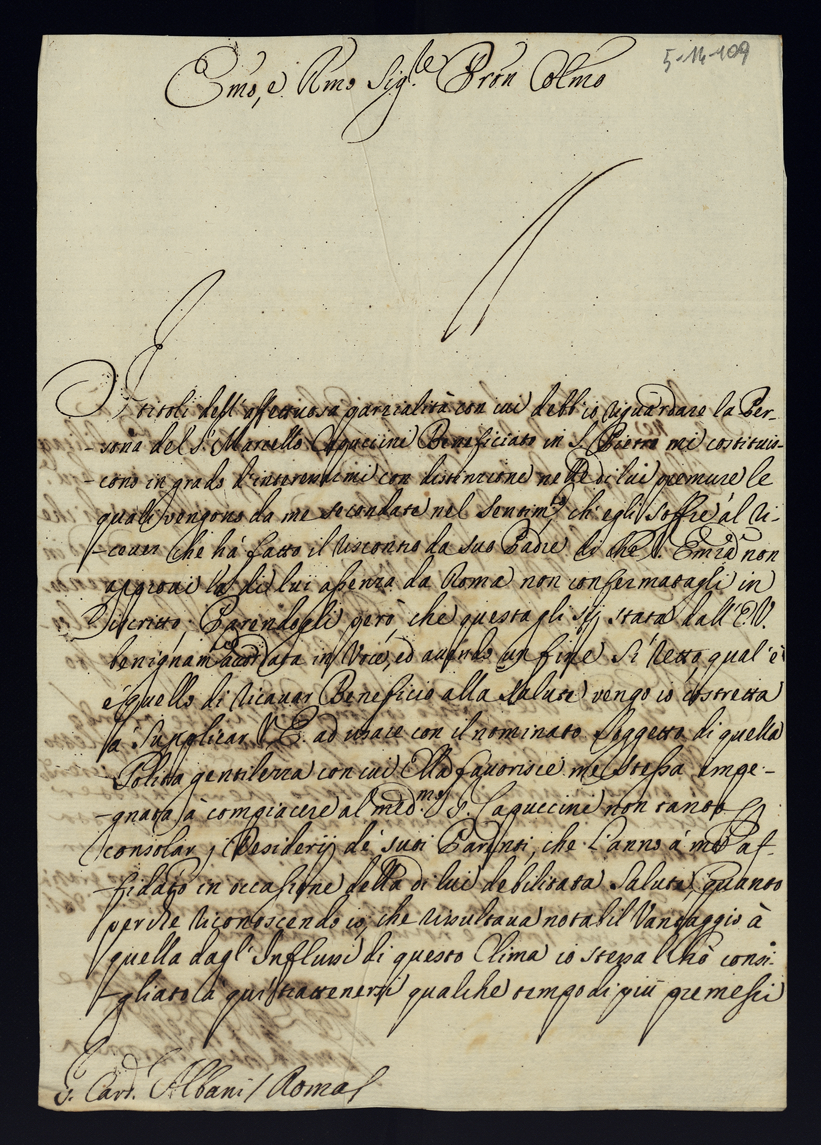 5-14-109
Emo, e Rmo Sig.re Pron Colmo
I titoli dell'affettuosa parzialità con cui debb'io riguardare la Per-
-sona del S.r Marcello Capuccini Beneficiato in S. Pietro mi costituis-
-cono in grado d'interessarmi con distinzione nelle di lui premure le
quali vengono da me secondate nel sentim.to, ch'egli soffre al ri-
-cever che hà fatto il riscontro da suo Padre di che V. Em.za non
approvi la di lui assenza da Roma non confermatagli in
Iscritto. Parendogli però che questa gli sij stata dall'E.V.
benignam.te accordata in Voce, ed avendo un fine sì retto qual'è
è quello di ricavar Beneficio alla salute vengo io costretta
à supplicar V.E. ad usare con il nominato soggetto di quella
solita gentilezza con cui Ella favorisce me stessa impe-
-gnata à compiacere al med.mo S. Capuccini non tanto per
consolar i Desiderij de suoi Parenti, che l'anno à me af-
-fidato in occasione della di lui debilitata salute, quanto
perche riconoscendo io, che risultava notabil Vantaggio à
quella dagl'Influssi di questo Clima io stessa l'hò consi-
-gliato à qui trattenersi qualche tempo di più premessi
S. Card. Albani / Roma